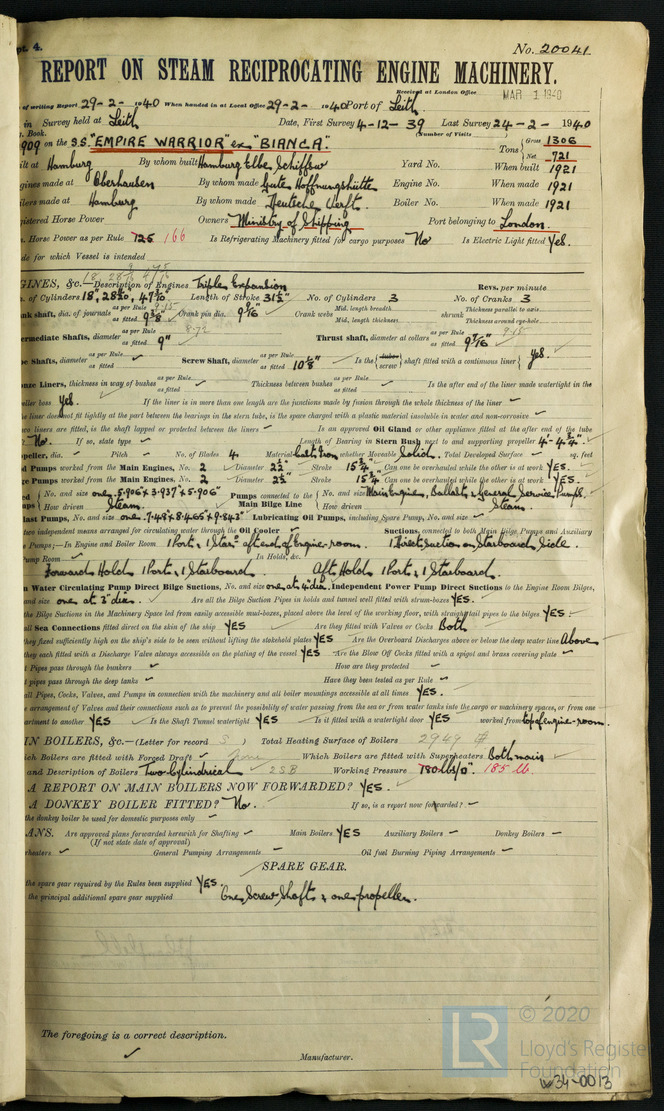 pt. 4.
No. 20041
REPORT ON STEAM RECIPROCATING ENGINE MACHINERY.
Received at London Office MAR 1 1940
of writing Report 29-2-1940 When handed in at Local Office 29-2-1940 Port of Leith
in Survey held at Leith Date, First Survey 4-12-39 Last Survey 24-2-1940
Book. (Number of Visits
909 on the S.S. "EMPIRE WARRIOR" ex "BIANCA" Tons { Gross 1306 Net 721
ilt at Hamburg By whom built Hamburg Elbe Schiffsw Yard No. When built 1921
gines made at Oberhausen By whom made Gute Hoffnungshütte Engine No. When made 1921
ilers made at Hamburg By whom made Deutsche Werft Boiler No. When made 1921
gistered Horse Power Owners Ministry of Shipping Port belonging to London.
. Horse Power as per Rule 125 166 Is Refrigerating Machinery fitted for cargo purposes No Is Electric Light fitted Yes.
ade for which Vessel is intended
GINES, &c.—Description of Engines Triple Expansion Revs. per minute
. of Cylinders Length of Stroke 31½" No. of Cylinders 3 No. of Cranks 3
nk shaft, dia. of journals as per Rule 9.15 as fitted 9⅜" Crank pin dia. 9 9/16" Crank webs Mid. length breadth Mid. length thickness shrunk Thickness parallel to axis Thickness around eye-hole
ermediate Shafts, diameter as per Rule 8.72 as fitted 9" Thrust shaft, diameter at collars as per Rule 9.15 as fitted 9 9/16"
be Shafts, diameter as per Rule as fitted Screw Shaft, diameter as per Rule as fitted 10⅛" Is the { tube screw } shaft fitted with a continuous liner { Yes.
nze Liners, thickness in way of bushes as per Rule as fitted Thickness between bushes as per Rule as fitted Is the after end of the liner made watertight in the
peller boss Yes. If the liner is in more than one length are the junctions made by fusion through the whole thickness of the liner
he liner does not fit tightly at the part between the bearings in the stern tube, is the space charged with a plastic material insoluble in water and non-corrosive
wo liners are fitted, is the shaft lapped or protected between the liners Is an approved Oil Gland or other appliance fitted at the after end of the tube
No. If so, state type Length of Bearing in Stern Bush next to and supporting propeller
peller, dia. Pitch No. of Blades 4 Material Cast Iron whether Moveable Solid. Total Developed Surface sq. feet
d Pumps worked from the Main Engines, No. 2 Diameter Stroke 15¾" Can one be overhauled while the other is at work YES.
ge Pumps worked from the Main Engines, No. 2 Diameter Stroke 15¾" Can one be overhauled while the other is at work YES.
No. and size one, 5.906 x 3.937 x 5.906" Pumps connected to the Main Bilge Line { No. and size Main Engines, Ballast & General Service Pumps.
How driven Steam. How driven Steam.
last Pumps, No. and size one 7.48 x 8.465 x 9.843" Lubricating Oil Pumps, including Spare Pump, No. and size
two independent means arranged for circulating water through the Oil Cooler Suctions, connected to both Main Bilge Pumps and Auxiliary
e Pumps;—In Engine and Boiler Room 1 Port & 1 Starᵈ aft end of Engine-room. 1 Direct Suction on Starboard Side.
Pump Room In Holds, &c.
Forward Hold 1 Port & 1 Starboard. Aft Hold 1 Port & 1 Starboard.
n Water Circulating Pump Direct Bilge Suctions, No. and size one at 4" dia. Independent Power Pump Direct Suctions to the Engine Room Bilges,
and size one at 3" dia. Are all the Bilge Suction Pipes in holds and tunnel well fitted with strum-boxes YES.
the Bilge Suctions in the Machinery Space led from easily accessible mud-boxes, placed above the level of the working floor, with straight tail pipes to the bilges YES.
all Sea Connections fitted direct on the skin of the ship YES Are they fitted with Valves or Cocks Both
they fixed sufficiently high on the ship's side to be seen without lifting the stokehold plates YES Are the Overboard Discharges above or below the deep water line Above
they each fitted with a Discharge Valve always accessible on the plating of the vessel YES Are the Blow Off Cocks fitted with a spigot and brass covering plate
t Pipes pass through the bunkers How are they protected
t pipes pass through the deep tanks Have they been tested as per Rule
all Pipes, Cocks, Valves, and Pumps in connection with the machinery and all boiler mountings accessible at all times YES.
e arrangement of Valves and their connections such as to prevent the possibility of water passing from the sea or from water tanks into the cargo or machinery spaces, or from one
artment to another YES Is the Shaft Tunnel watertight YES Is it fitted with a watertight door YES worked from top of engine-room.
IN BOILERS, &c.—(Letter for record S ) Total Heating Surface of Boilers 2949
ich Boilers are fitted with Forced Draft None Which Boilers are fitted with Superheaters Both mains
and Description of Boilers Two Cylindrical 2SB Working Pressure 180 lbs/□" 185 lb.
A REPORT ON MAIN BOILERS NOW FORWARDED? YES.
A DONKEY BOILER FITTED? No. If so, is a report now forwarded?
the donkey boiler be used for domestic purposes only
ANS. Are approved plans forwarded herewith for Shafting Main Boilers YES Auxiliary Boilers Donkey Boilers
(If not state date of approval)
rheaters General Pumping Arrangements Oil fuel Burning Piping Arrangements
SPARE GEAR.
the spare gear required by the Rules been supplied YES.
the principal additional spare gear supplied One Screw Shaft & one propeller.
The foregoing is a correct description.
Manufacturer.
LR © 2020
Lloyd's Register
Foundation
W34-0013